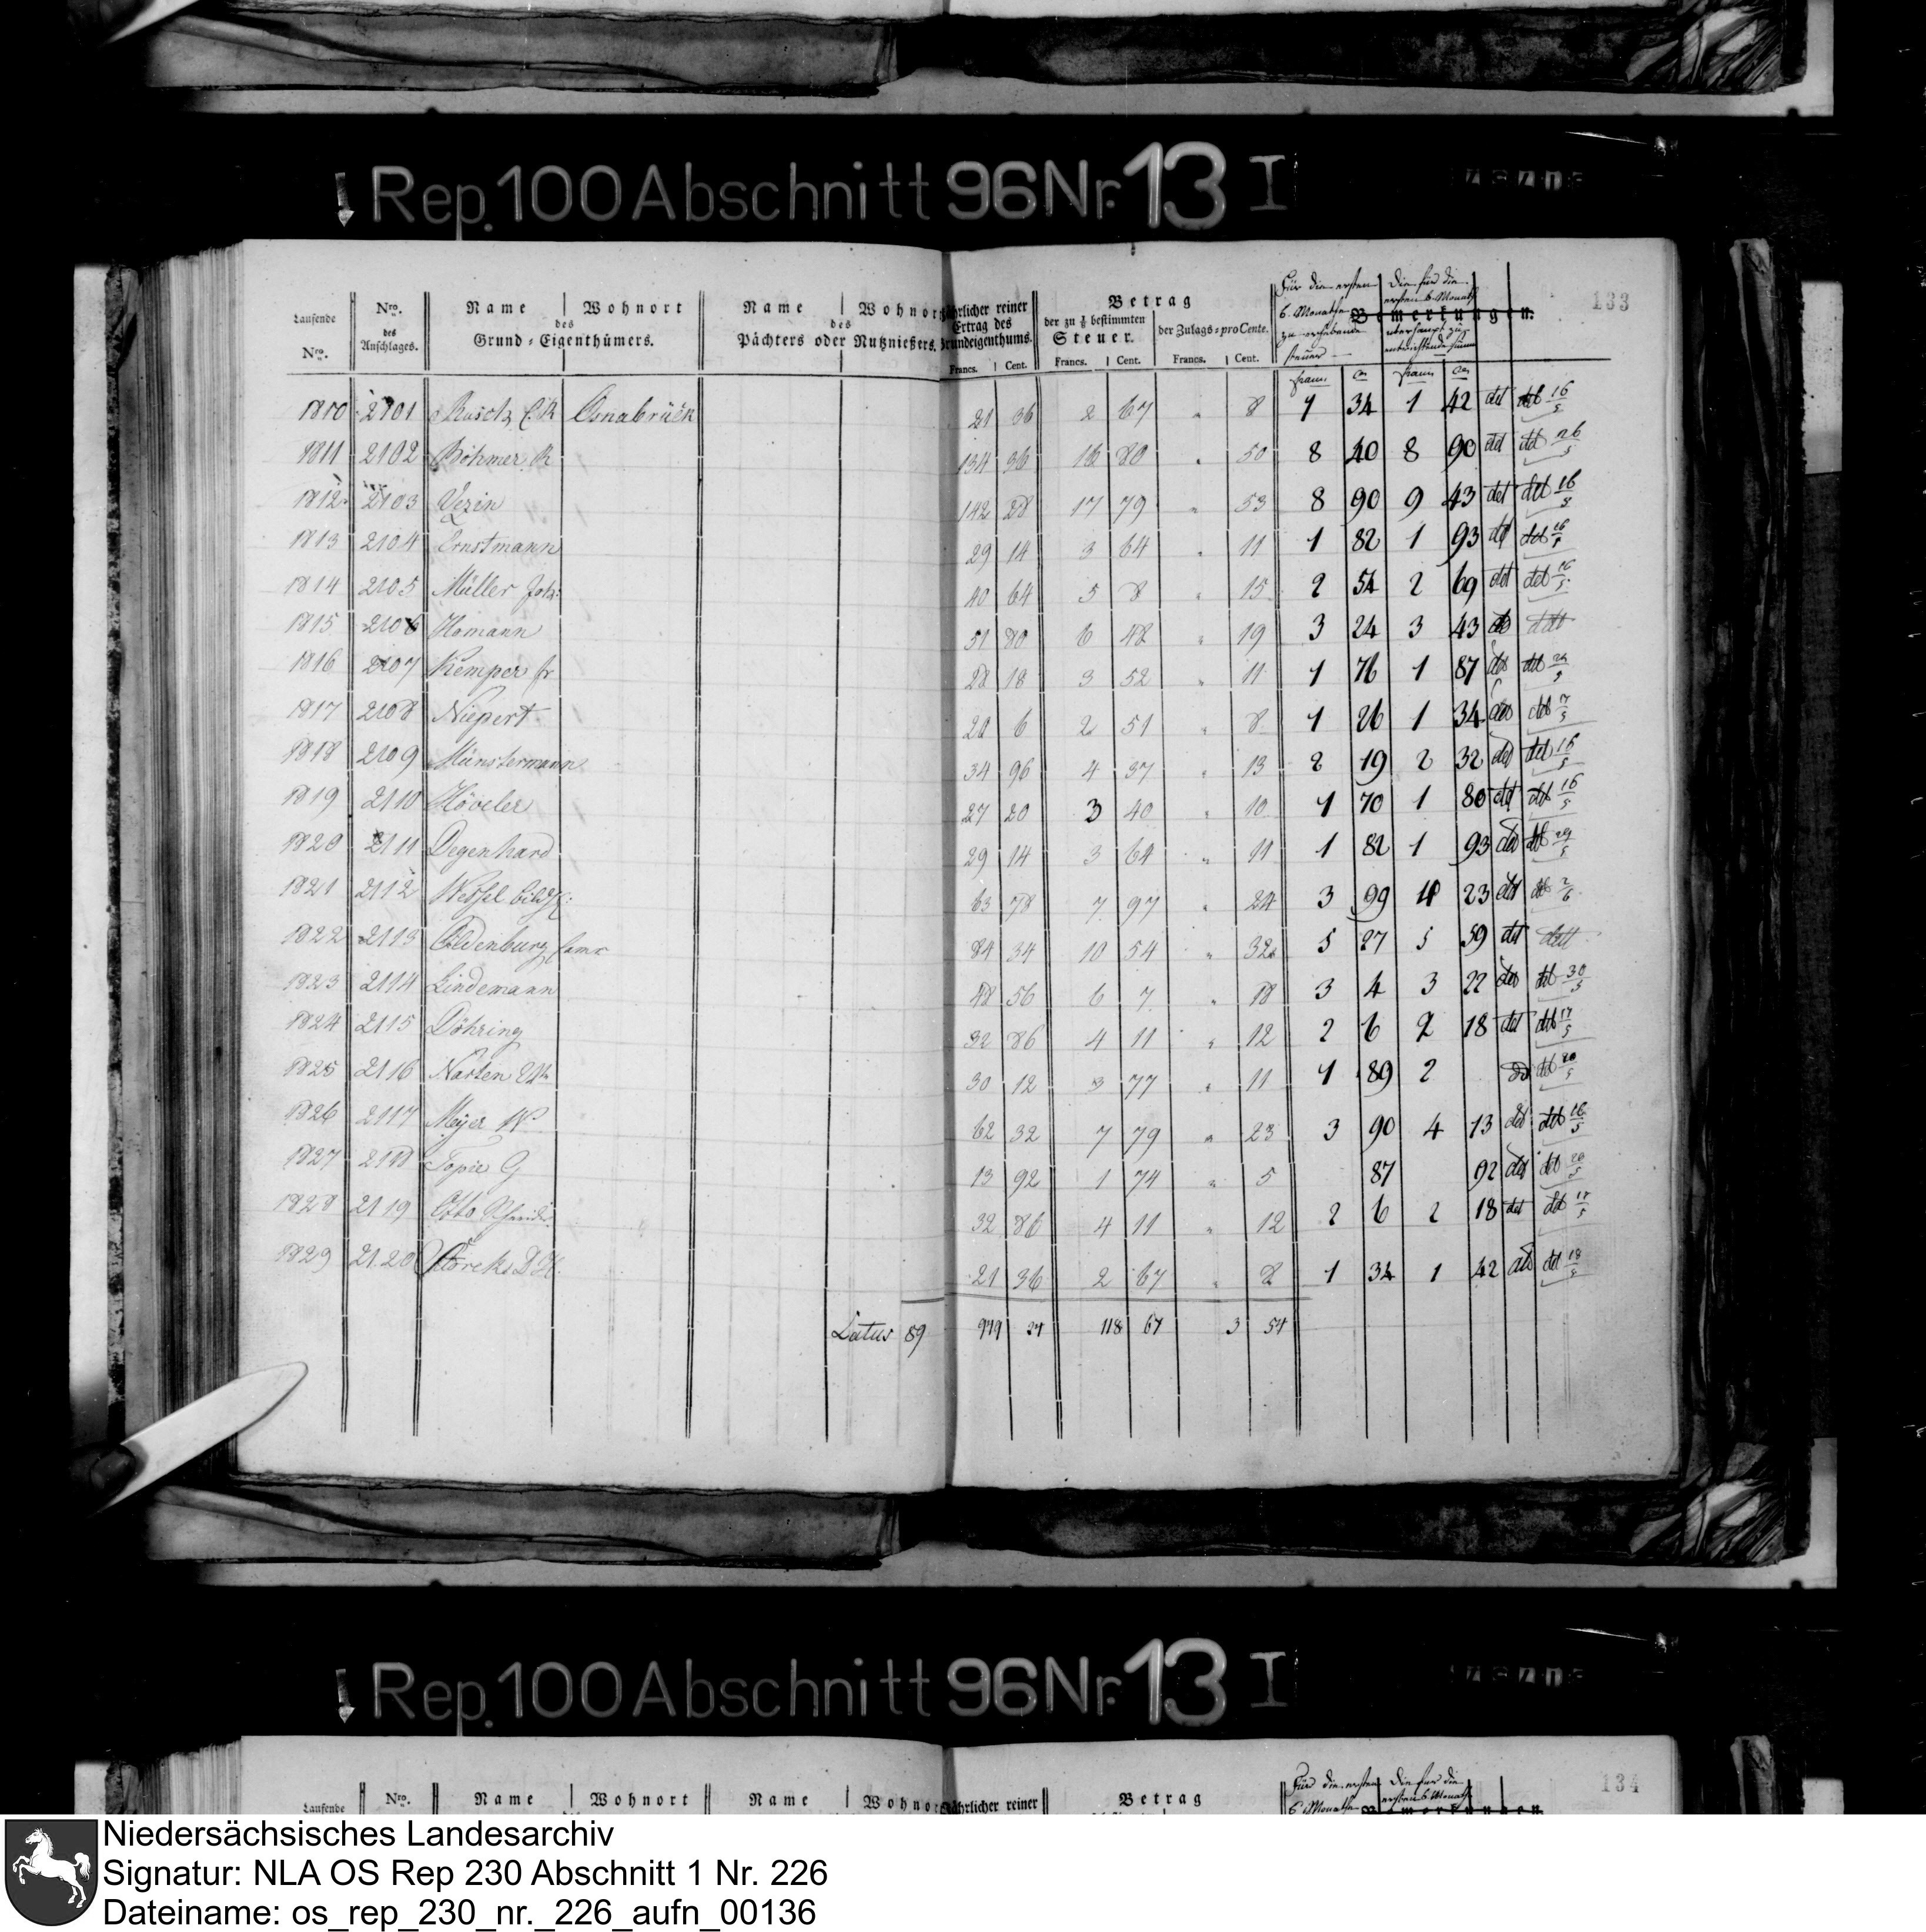 Rep. 100 Abschnitt 96 Nr. 13 I
133
Laufende Nro. | Nro. des Anschlages. | Name Wohnort des Grund-Eigenthümers. | Name Wohnort des Pächters oder Nutznießers. | jährlicher reiner Ertrag des Grundeigenthums. Francs. Cent. | Betrag der zu ⅛ bestimmten Steuer. Francs. Cent. | der Zulags-proCente. Francs. Cent. | Für die ersten 6 Monathe zu erhebende Steuer | Die für die ersten 6 Monath überhaupt zu entrichtende Summe | Bemerkungen.
1810 2101 Rasch C.R Osnabrück 21 36 2 67 " 8 1 34 1 42 det det 16/5
1811 2102 Böhmer R 134 36 16 80 " 50 8 40 8 90 det det 26/5
1812 2103 Vezin 142 28 17 79 " 53 8 90 9 43 det det 16/5
1813 2104 Ernstmann 29 14 3 64 " 11 1 82 1 93 det det 16/5
1814 2105 Müller Joh: 40 64 5 8 " 15 2 54 2 69 det det 16/5
1815 2106 Homann 51 80 6 48 " 19 3 24 3 43 det
1816 2107 Kemper jr 28 18 3 52 " 11 1 76 1 87 det det
1817 2108 Niepert 20 6 2 51 " 8 1 26 1 34 det det 17/5
1818 2109 Münstermann 34 96 4 37 " 13 2 19 2 32 det det 16/5
1819 2110 Höveler 27 20 3 40 " 10 1 70 1 80 det det 16/5
1820 2111 Degenhard 29 14 3 64 " 11 1 82 1 93 det det 29/5
1821 2112 Wessel 63 78 7 97 " 24 3 99 4 23 det det 2/6
1822 2113 Oldenburg 84 34 10 54 " 32 5 27 5 59 det
1823 2114 Lindemann 48 56 6 7 " 18 3 4 3 22 det det 30/5
1824 2115 Döhring 32 86 4 11 " 12 2 6 2 18 det det 17/5
1825 2116 Narten 30 12 3 77 " 11 1 89 2 det 20/5
1826 2117 Meyer W 62 32 7 79 " 23 3 90 4 13 det det 16/5
1827 2118 Topie G 13 92 1 74 " 5 87 92 det det 20/5
1828 2119 Otto 32 86 4 11 " 12 2 6 2 18 det det 17/5
1829 2120 Storck D H 21 36 2 67 " 8 1 34 1 42 det det 18/5
Latus 89 949 24 118 67 3 54
Rep. 100 Abschnitt 96 Nr. 13 I
134
Laufende | Nro. | Name Wohnort | Name Wohnort | jährlicher reiner | Betrag | Für die ersten 6 Monathe | Die für die ersten 6 Monath | Bemerkungen.
Niedersächsisches Landesarchiv
Signatur: NLA OS Rep 230 Abschnitt 1 Nr. 226
Dateiname: os_rep_230_nr._226_aufn_00136